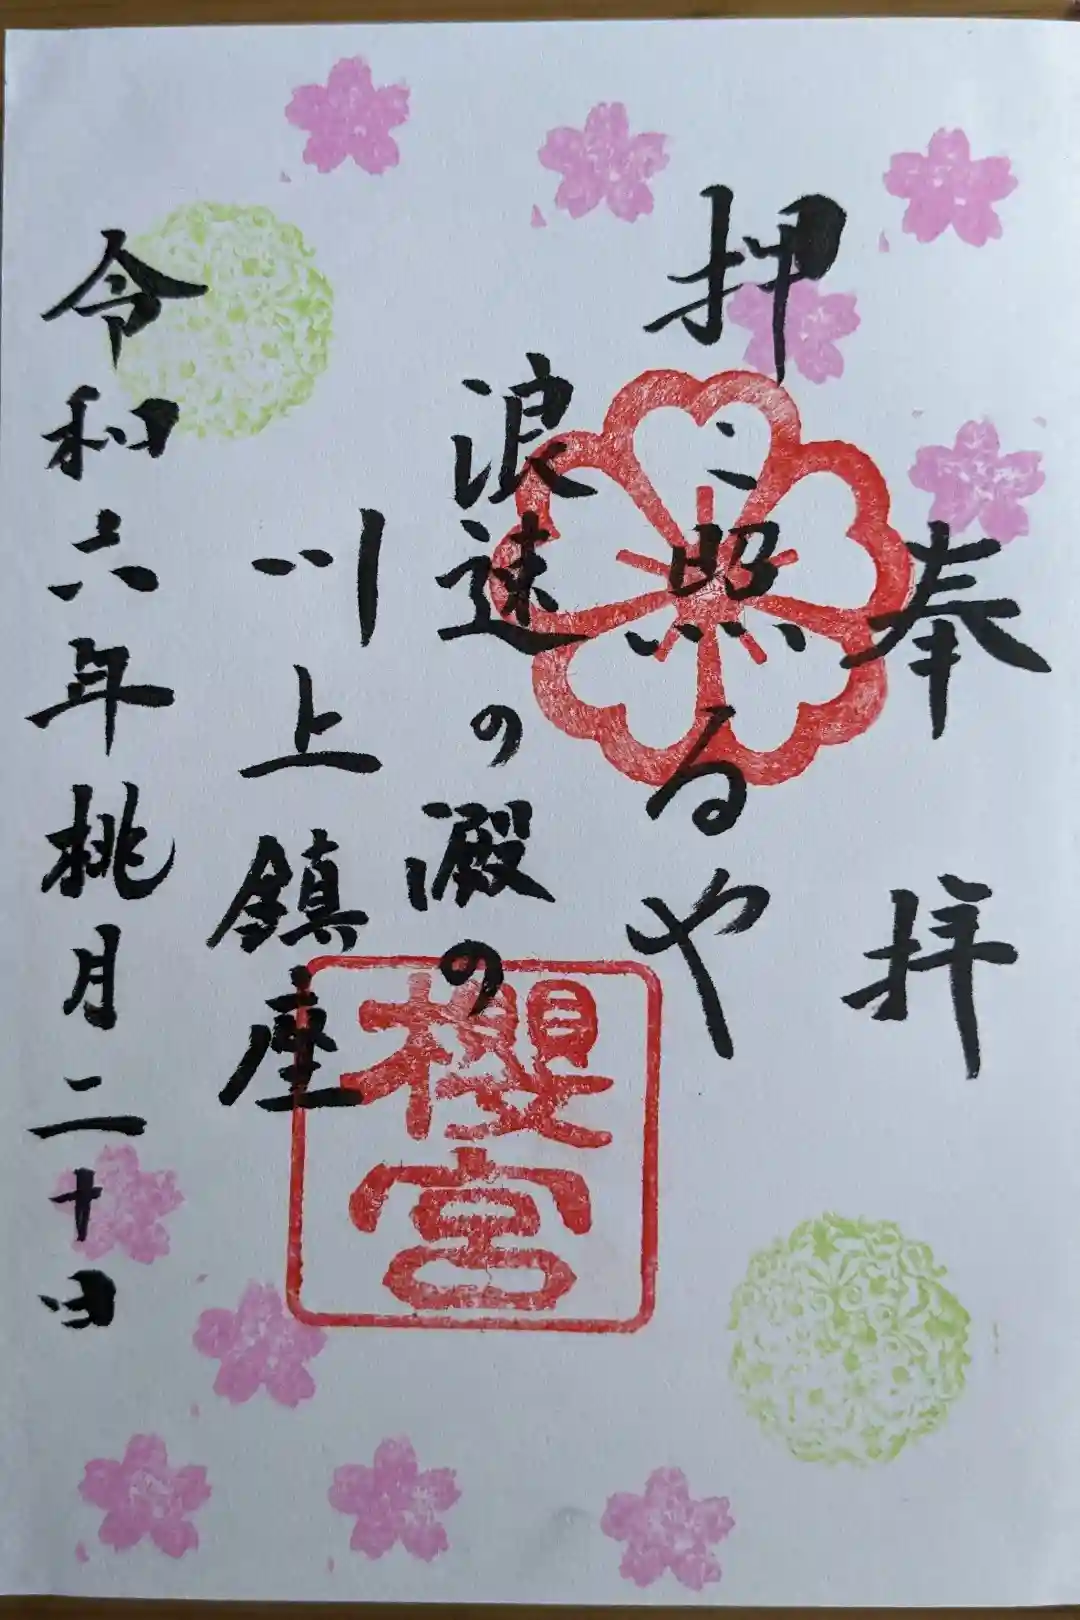 奉拝
押こ照るや
浪速の澱の
川上鎮座
令和六年桃月二十日
櫻宮